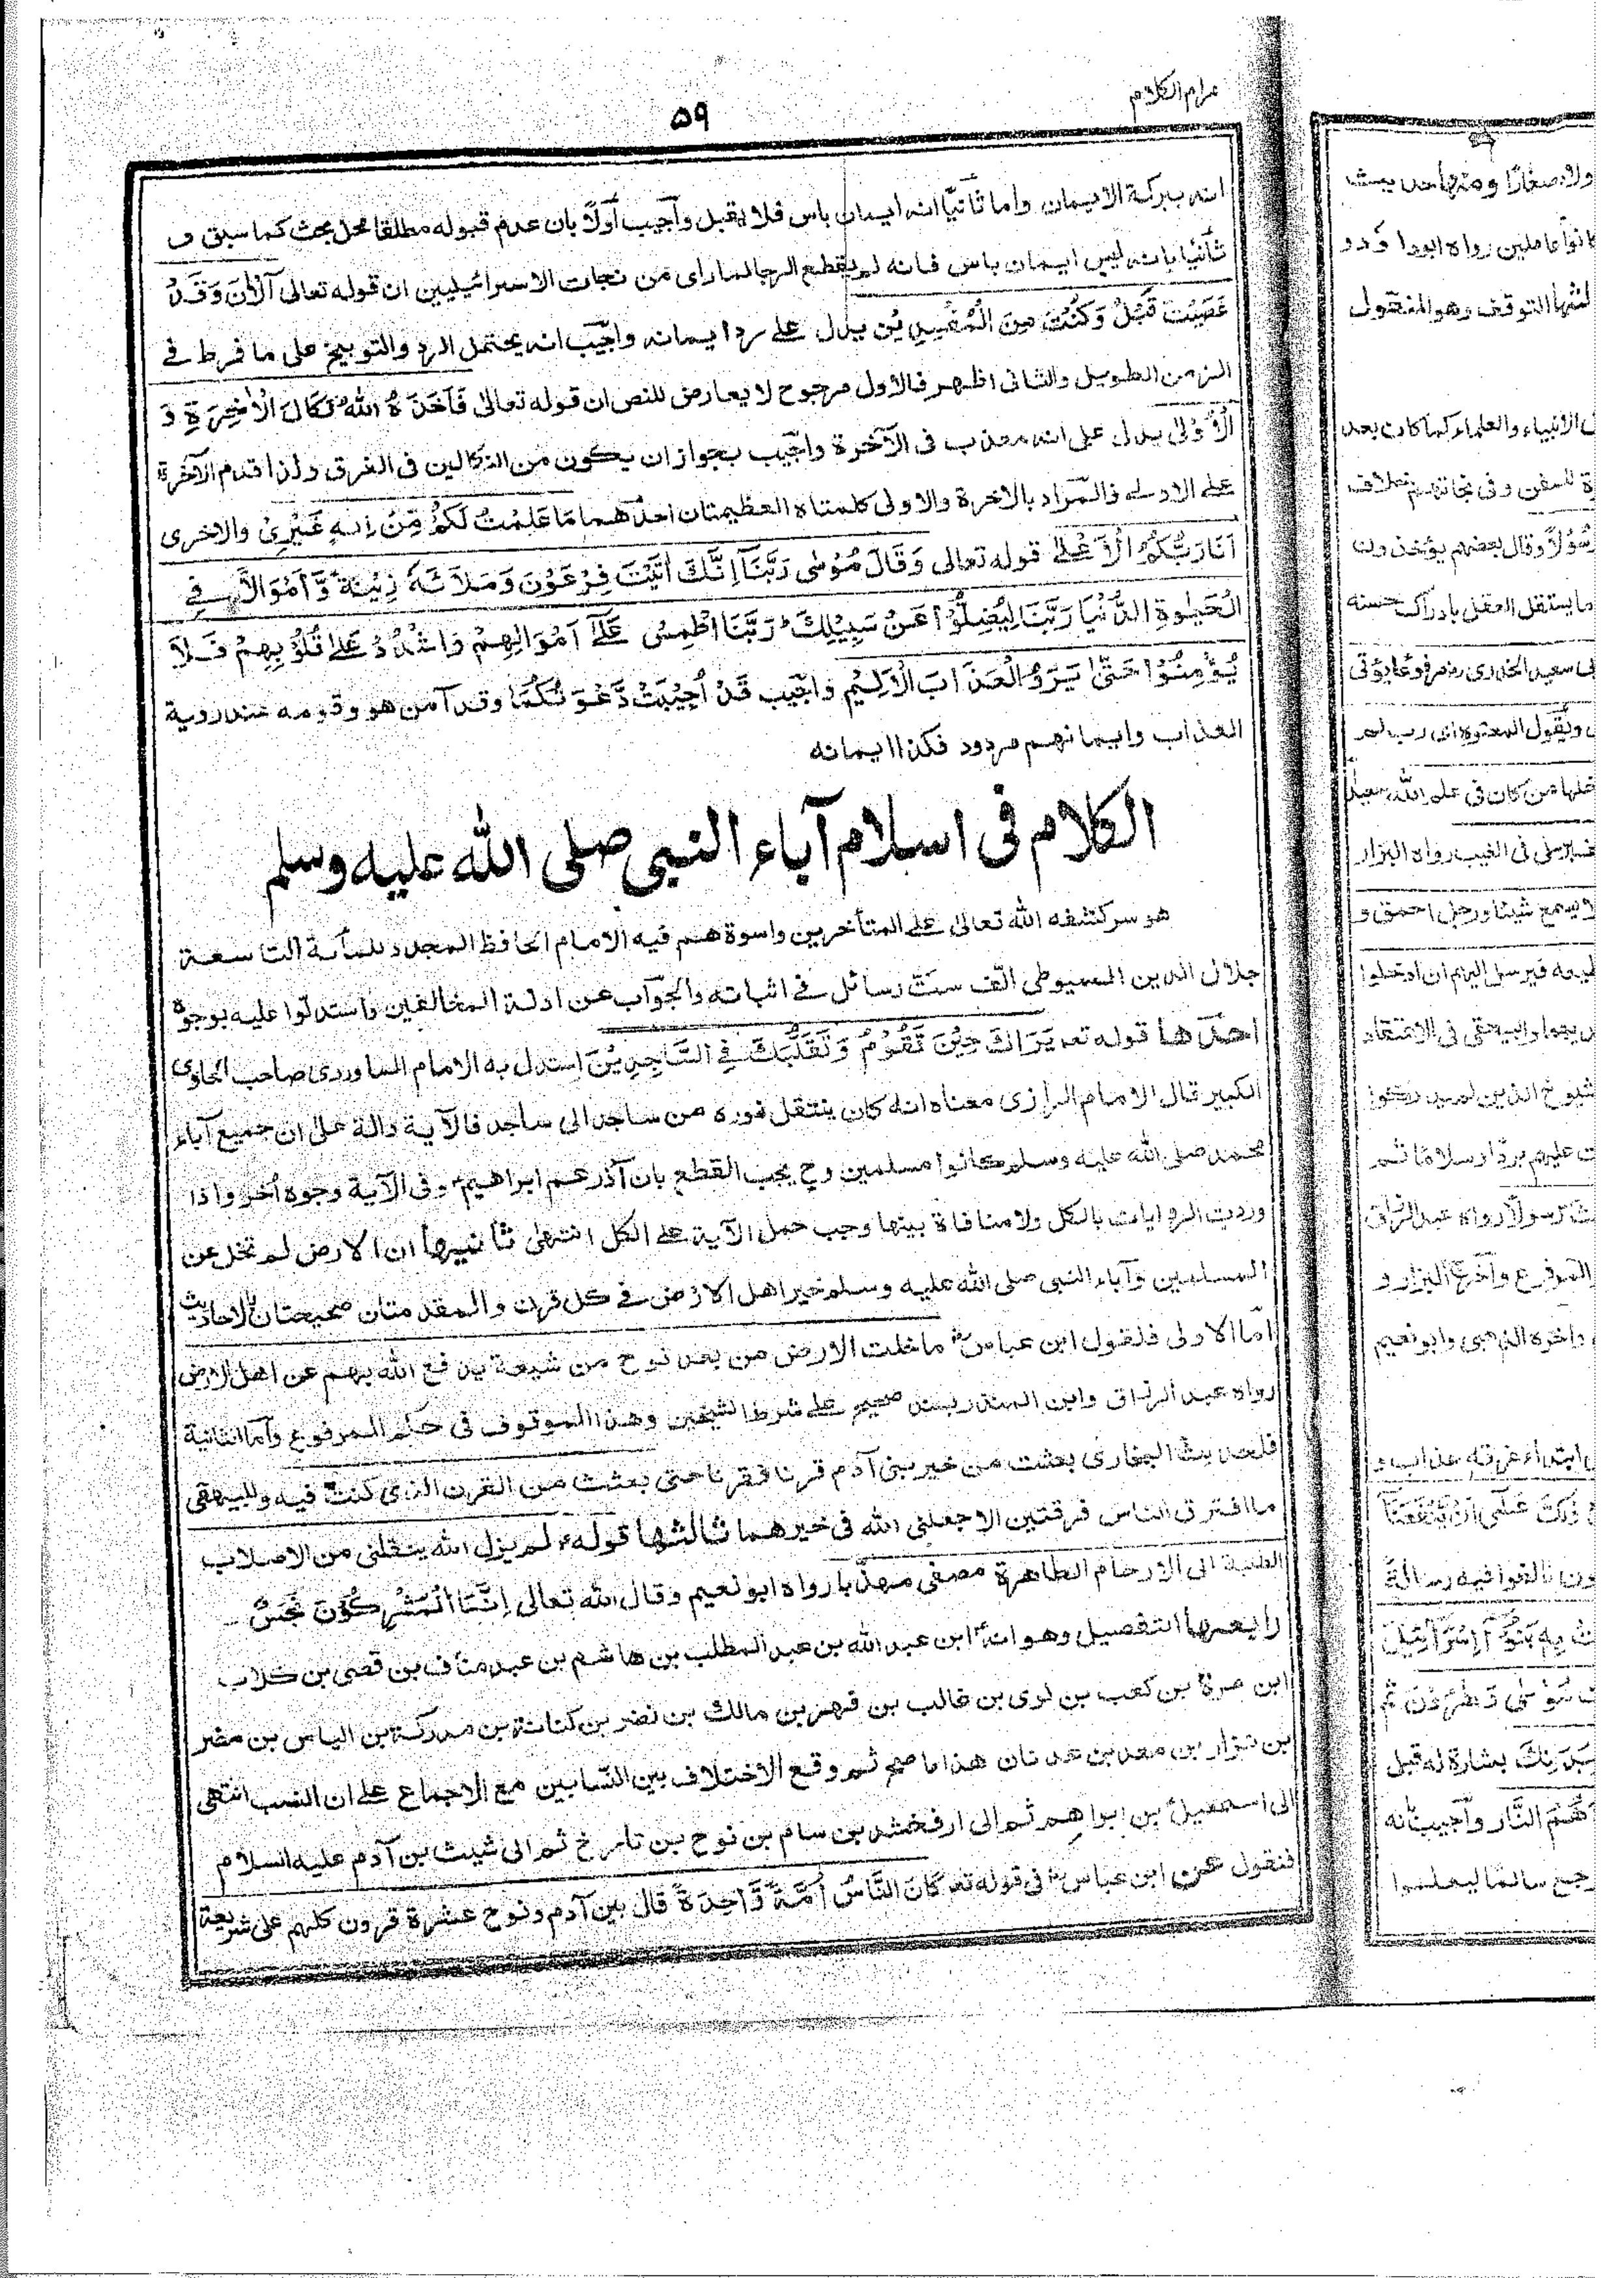 مرام الكلام
٥٩
انه ببركة الايمان واما ثانيّا انه ايمان باس فلا يقبل وآجيب أولًا بان عدم قبوله مطلقا محل بحث كما سبق و
ثانيًا بانه ليس ايمان باس فانه لم يقطع الرجا لما رأى من نجات الاسرائيليين ان قوله تعالى آلْاٰنَ وَقَدْ
عَصَيْتَ قَبْلُ وَكُنْتَ مِنَ الْمُفْسِدِيْنَ يدل علے رد ايمانه واجّيب انه يحتمل الرد والتوبيخ على ما فرط فے
الزمن الطويل والثانى اظهر فالاول مرجوح لا يعارض للنص ان قوله تعالىٰ فَاَخَذَهُ اللّٰهُ نَكَالَ الْاٰخِرَةِ وَ
الْاُوْلٰى يدل على انه معذب فى الآخرة واجّيب بجواز ان يكون من النكالين فى الغرق ولذا قدم الآخرة
علے الاولے والمراد بالاخرة والاولى كلمتاه العظيمتان احدٰهما مَا عَلِمْتُ لَكُمْ مِّنْ اِلٰهٍ غَيْرِىْ والاخرى
اَنَا رَبُّكُمُ الْاَعْلٰے قوله تعالى وَقَالَ مُوْسٰى رَبَّنَا اِنَّكَ اٰتَيْتَ فِرْعَوْنَ وَمَلَاَئَهٗ زِيْنَةً وَّاَمْوَالًا فِے
الْحَيٰوةِ الدُّنْيَا رَبَّنَا لِيُضِلُّوْا عَنْ سَبِيْلِكَ رَبَّنَا اطْمِسْ عَلٰے اَمْوَالِهِمْ وَاشْدُدْ عَلٰے قُلُوْبِهِمْ فَلَا
يُؤْمِنُوْا حَتّٰى يَرَوُا الْعَذَابَ الْاَلِيْمَ واجّيب قَدْ اُجِيْبَتْ دَّعْوَتُكُمَا وقد آمن هو وقومه عند روية
العذاب وايمانهم مردود فكذا ايمانه
الكلام فى اسلام آباء النبى صلى الله عليه وسلم
هو سر كشفه الله تعالى علے المتأخرين واسوة هم فيه الامام الحافظ المجدد للمأة التاسعة
جلال الدين السيوطى الّف ست رسائل فے اثباته والجوّاب عن ادلة المخالفين واستدلّوا عليه بوجوه
احدها قوله تعـ يَرَاكَ حِيْنَ تَقُوْمُ وَتَقَلُّبَكَ فِے السَّاجِدِيْنَ استدل به الامام الماوردى صاحب الحاوى
الكبير قال الامام الرازى معناه انه كان ينتقل نوره من ساجد الى ساجد فالآية دالة على ان جميع آباء
محمد صلى الله عليه وسلم كانوا مسلمين وح يجب القطع بان آذر عم ابراهيم وفى الآية وجوه اُخر واذا
وردت الروايات بالكل ولا منافاة بينها وجب حمل الآية علے الكل انتهٰى ثانيها ان الارض لم تخل عن
المسلمين وآباء النبى صلى الله عليه وسلم خير اهل الارض فے كل قرن والمقدمتان صحيحتان بالاحاديث
امّا الاولى فلقول ابن عباس ما خلت الارض من بعد نوح من شيعة يدفع الله بهم عن اهل الارض
رواه عبد الرزاق وابن المنذر بسند صحيح علے شرط الشيخين وهذا الموقوف فى حكم المرفوع وأما الثانية
فلحديث البخارى بعثت من خير بنى آدم قرنا فقرنا حتى بعثت من القرن الذى كنت فيه وللبيهقى
ما افترق الناس فرقتين الا جعلنى الله فى خيرهما ثالثها قوله لم يزل الله ينقلنى من الاصلاب
الطيبة الى الارحام الطاهرة مصفى مهذّبا رواه ابو نعيم وقال الله تعالى اِنَّمَا الْمُشْرِكُوْنَ نَجَسٌ
رابعها التفصيل وهو انه ابن عبد الله بن عبد المطلب بن هاشم بن عبد مناف بن قصى بن كلاب
ابن مرة بن كعب بن لوى بن غالب بن فهر بن مالك بن نضر بن كنانة بن مدركة بن الياس بن مضر
بن نزار بن معد بن عدنان هذا ما صح ثم وقع الاختلاف بين النسابين مع الاجماع علے ان النسب انتهى
الى اسمعيل بن ابراهم ثم الى ارفخشد بن سام بن نوح بن تارخ ثم الى شيث بن آدم عليه السلام
فنقول عن ابن عباس فى قوله تعـ كَانَ النَّاسُ اُمَّةً وَّاحِدَةً قال بين آدم ونوح عشرة قرون كلهم على شريعة
كانوا عاملين رواه ابوداؤد و
لثها التوقف وهو المنقول
الانبياء والعلماء كما كان بعد
رسُوْلاً وقال بعضهم يؤخذون
ما يستقل العقل بادراك حسنه
ويقول المعتوه اى رب لم
خلها من كان فى علم الله سعيدًا
لا يسمع شيئا ورجل احمق و
ت عليهم بردًا وسلامًا ثم
المرفوع وآخرج البزار و
ون نالفوا فيه رسالة
بِهٖ بَنُوْ اِسْرَائِيْلَ
بِبَدَنِكَ بشارة له قبل
النَّار وأجيب بانه
رجع سالمًا ليعلموا